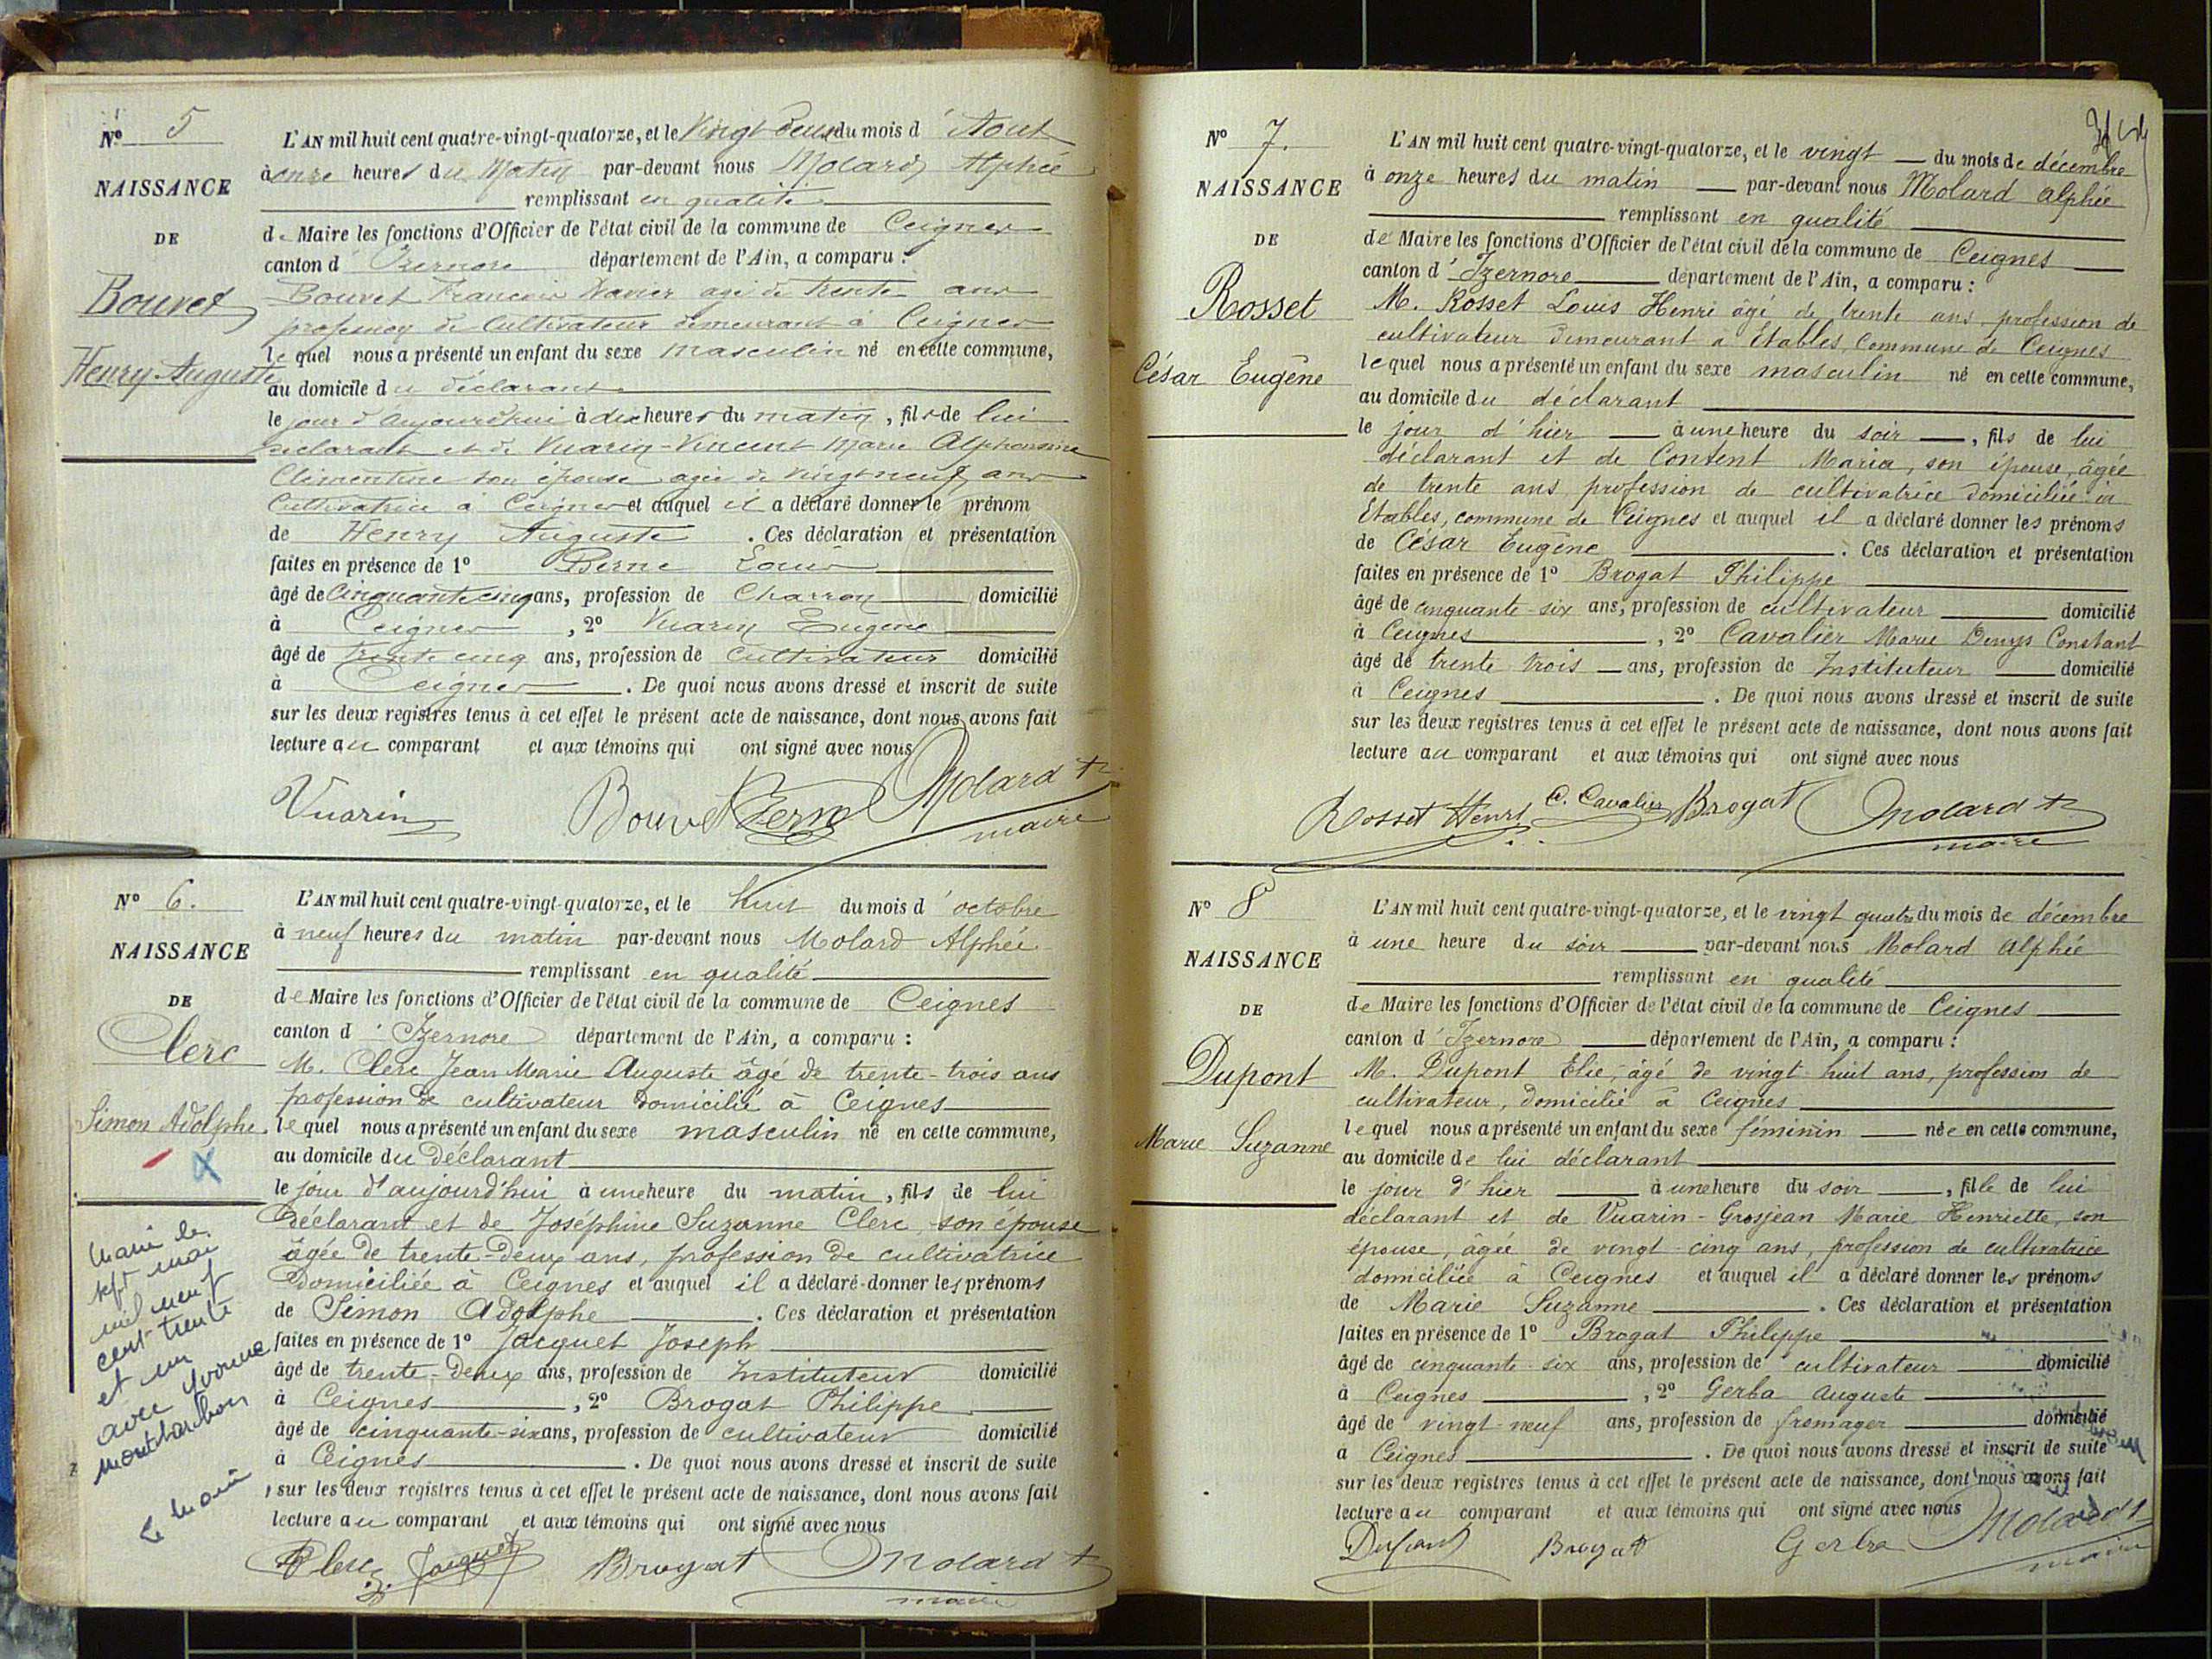 Nº 5
NAISSANCE
DE
Bouvet
Henry Auguste
L'AN mil huit cent quatre-vingt-quatorze, et le Vingt deux du mois d'Aout
à onze heures du Matin par-devant nous Molard Alphée
remplissant en qualité
de Maire les fonctions d'Officier de l'état civil de la commune de Ceignes
canton d'Izernore département de l'Ain, a comparu :
Bouvet François Xavier agé de trente ans
profession de Cultivateur demeurant à Ceignes
lequel nous a présenté un enfant du sexe masculin né en cette commune,
au domicile du déclarant
le jour d'aujourd'hui à dix heures du matin, fils de lui
déclarant et de Vuarin-Vincent Marie Alphonsine
Clémentine son épouse agée de vingt neuf ans
Cultivatrice à Ceignes et auquel il a déclaré donner le prénom
de Henry Auguste . Ces déclaration et présentation
faites en présence de 1º Berne Louis
âgé de Cinquante cinq ans, profession de Charron domicilié
à Ceignes , 2º Vuarin Eugène
âgé de trente cinq ans, profession de Cultivateur domicilié
à Ceignes . De quoi nous avons dressé et inscrit de suite
sur les deux registres tenus à cet effet le présent acte de naissance, dont nous avons fait
lecture au comparant et aux témoins qui ont signé avec nous
Vuarin Bouvet Bern Molard A
maire
Nº 6.
NAISSANCE
DE
Clerc
Simon Adolphe.
Marié le
sept mai
mil neuf
cent trente
et un
avec Yvonne
Montcharbon
Le Maire
L'AN mil huit cent quatre-vingt-quatorze, et le huit du mois d'octobre
à neuf heures du matin par-devant nous Molard Alphée
remplissant en qualité
de Maire les fonctions d'Officier de l'état civil de la commune de Ceignes
canton d'Izernore département de l'Ain, a comparu :
M. Clerc Jean Marie Auguste âgé de trente-trois ans
profession de cultivateur domicilié à Ceignes
lequel nous a présenté un enfant du sexe masculin né en cette commune,
au domicile du Déclarant
le jour d'aujourd'hui à une heure du matin, fils de lui
Déclarant et de Joséphine Suzanne Clerc, son épouse
âgée de trente-deux ans, profession de cultivatrice
Domiciliée à Ceignes et auquel il a déclaré donner les prénoms
de Simon Adolphe . Ces déclaration et présentation
faites en présence de 1º Jacquet Joseph
âgé de trente-deux ans, profession de Instituteur domicilié
à Ceignes , 2º Brogat Philippe
âgé de cinquante-six ans, profession de cultivateur domicilié
à Ceignes . De quoi nous avons dressé et inscrit de suite
sur les deux registres tenus à cet effet le présent acte de naissance, dont nous avons fait
lecture au comparant et aux témoins qui ont signé avec nous
Clerc Jacquet Brogat Molard A
maire
Nº 7.
NAISSANCE
DE
Rosset
César Eugène
L'AN mil huit cent quatre-vingt-quatorze, et le vingt du mois de décembre
à onze heures du matin par-devant nous Molard Alphée
remplissant en qualité
de Maire les fonctions d'Officier de l'état civil de la commune de Ceignes
canton d'Izernore département de l'Ain, a comparu :
M. Rosset Louis Henri âgé de trente ans, profession de
cultivateur demeurant à Etables, commune de Ceignes
lequel nous a présenté un enfant du sexe masculin né en cette commune,
au domicile du déclarant
le jour d'hier à une heure du soir , fils de lui
déclarant et de Content Maria, son épouse, âgée
de trente ans, profession de cultivatrice domiciliée à
Etables, commune de Ceignes et auquel il a déclaré donner les prénoms
de César Eugène . Ces déclaration et présentation
faites en présence de 1º Brogat Philippe
âgé de cinquante-six ans, profession de cultivateur domicilié
à Ceignes , 2º Cavalier Marie Denys Constant
âgé de trente trois ans, profession de Instituteur domicilié
à Ceignes . De quoi nous avons dressé et inscrit de suite
sur les deux registres tenus à cet effet le présent acte de naissance, dont nous avons fait
lecture au comparant et aux témoins qui ont signé avec nous
Rosset Henri C. Cavalier Brogat Molard A
maire
Nº 8
NAISSANCE
DE
Dupont
Marie Suzanne
L'AN mil huit cent quatre-vingt-quatorze, et le vingt quatre du mois de décembre
à une heure du soir par-devant nous Molard Alphée
remplissant en qualité
de Maire les fonctions d'Officier de l'état civil de la commune de Ceignes
canton d'Izernore département de l'Ain, a comparu :
M. Dupont Elie, âgé de vingt-huit ans, profession de
cultivateur, domicilié à Ceignes
lequel nous a présenté un enfant du sexe féminin née en cette commune,
au domicile de lui déclarant
le jour d'hier à une heure du soir , fille de lui
déclarant et de Vuarin-Grosjean Marie Henriette, son
épouse, âgée de vingt-cinq ans, profession de cultivatrice
domiciliée à Ceignes et auquel il a déclaré donner les prénoms
de Marie Suzanne . Ces déclaration et présentation
faites en présence de 1º Brogat Philippe
âgé de cinquante-six ans, profession de cultivateur domicilié
à Ceignes , 2º Gerba Auguste
âgé de vingt-neuf ans, profession de fromager domicilié
à Ceignes . De quoi nous avons dressé et inscrit de suite
sur les deux registres tenus à cet effet le présent acte de naissance, dont nous avons fait
lecture au comparant et aux témoins qui ont signé avec nous
Dupont Brogat Gerba Molard A
maire